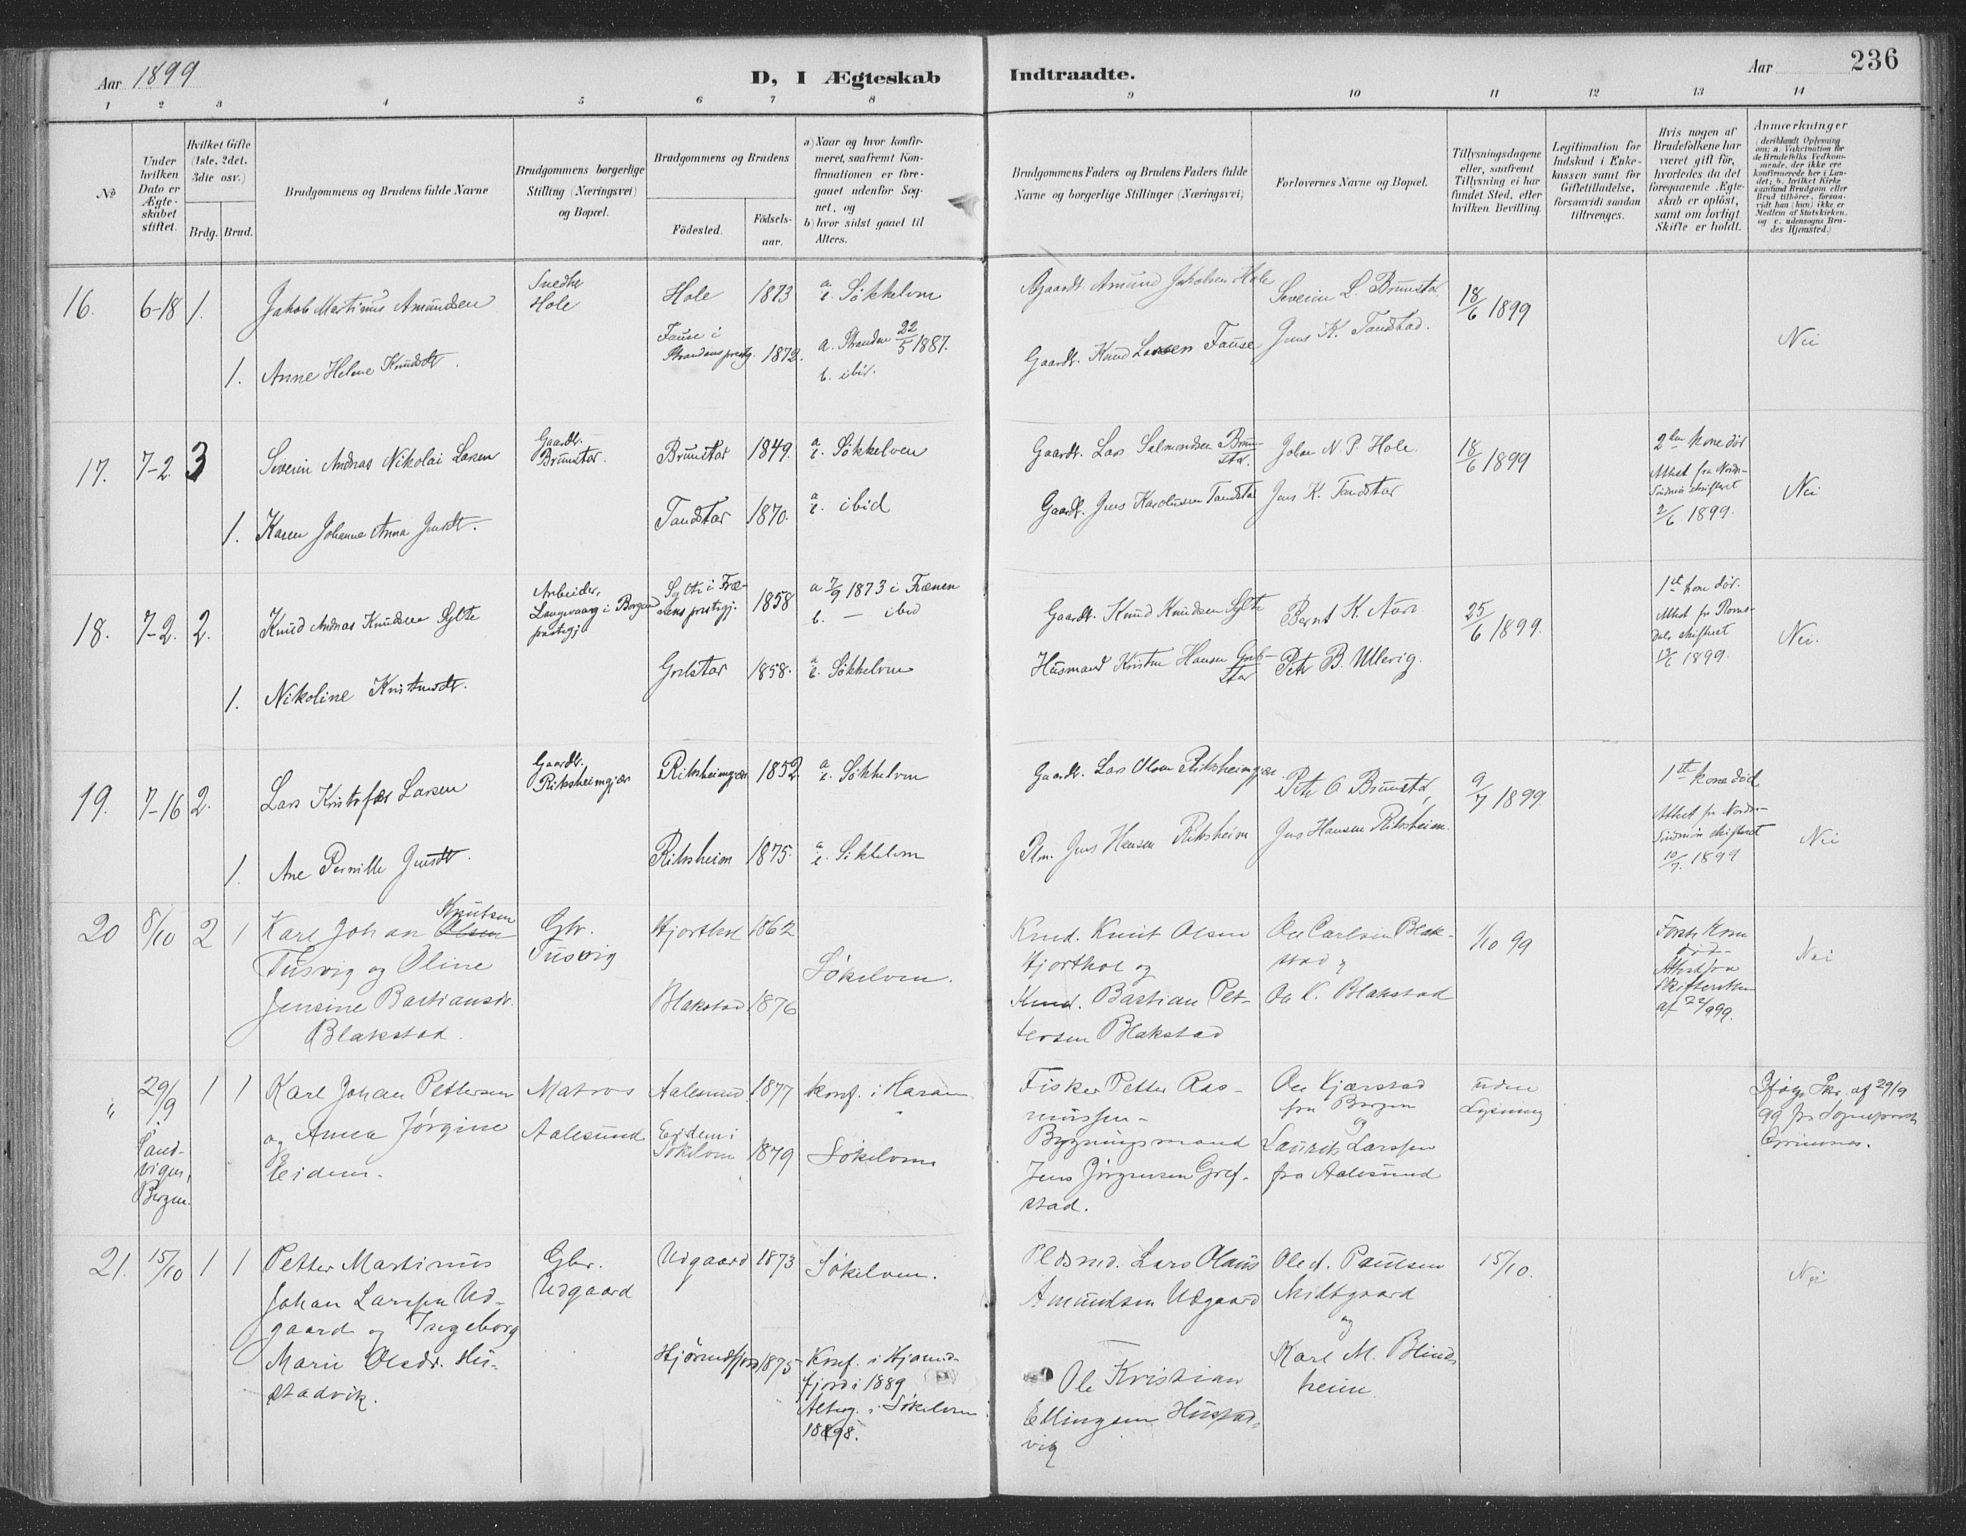 Aar 1899
D, I Ægteskab
Indtraadte.
Aar
236
1 2 3 4 5 6 7 8 9 10 11 12 13 14
No
Under hvilken Dato er Ægteskabet stiftet.
Hvilket Gifte (1ste, 2det, 3die osv.)
Brdg. Brud.
Brudgommens og Brudens fulde Navne
Brudgommens borgerlige Stilling (Næringsvei) og Bopæl.
Brudgommens og Brudens
Fødested.
Fødselsaar.
a) Naar og hvor konfirmeret, saafremt Konfirmationen er foregaaet udenfor Sognet, og
b) hvor sidst gaaet til Alters.
Brudgommens Faders og Brudens Faders fulde Navne og borgerlige Stillinger (Næringsvei)
Forlovernes Navne og Bopæl.
Tillysningsdagene eller, saafremt Tillysning ei har fundet Sted, efter hvilken Bevilling.
Legitimation for Indskud i Enkekassen samt for Giftetilladelse, forsaavidt saadan tiltrænges.
Hvis nogen af Brudefolkene har været gift før, hvorledes da det foregaaende Ægteskab er opløst, samt om lovligt Skifte er holdt.
Anmærkninger
16. 6-18 1.
Jakob Martinus Amundsen
Snedker
Hole
Hole 1873
a b. Søkkelven
Gaardt. Amund Jakobsen Hole
Severin L. Brunstad
18/6 1899
1. Anne Helene Knudsdt.
Fause i Strandens prestgj. 1872.
a. Stranden 22/5 1887.
b. ibid.
Gaardt. Knud Larsen Fause
Jens K. Tandstad.
Nei
17. 7-2. 3
Severin Andreas Nikolai Larsen
Gaardbr. Brunstad.
Brunstad 1849.
a b. Søkkelven
Gaardt. Lars Salmundsen Brunstad.
Johan N. P. Hole
18/6 1899
2den kone død
Attest fra Nordre Søndmør skifteret 2/6 1899.
1. Karen Johanne Anna Jensdt.
Tandstad 1870.
a b. ibid
Gaardt. Jens Karolussen Tandstad
Jens K. Tandstad
Nei
18. 7-2. 2.
Knud Andreas Knudsen Sylte
Arbeider, Langevaag i Borgund prestegj.
Sylte i Frænens prestgj. 1858
a 7/9 1873 i Frænen
b. — ibid
Gaardt. Knud Knudsen Sylte
Bernt K. Aure
25/6 1899.
1ste kone død.
Attest fr Romsdals skifteret
1899.
Nei.
1. Nikoline Kristensdt.
Grebstad 1858.
a b. Søkkelven
Husmand Kristen Hansen Grebstad
Petr B. Ullevig.
19. 7-16 2.
Lars Kristofær Larsen
Gaardbr. Riksheimgjær
Riksheimgjær 1852.
a b. Søkkelven
Gaardt. Lars Olsen Riksheimgjær
Petr O Brunstad,
9/7 1899.
1ste kone død
Attest fr Nordre Søndmør skifteret 10/7. 1899
1. Ane Pernille Jensdt.
Riksheim 1875.
a b. Søkkelven
Pm. Jens Hansen Riksheim
Jens Hansen Riksheim.
Nei
20 8/10 2 1
Karl Johan Olsen Knutsen
Tusvig og Oline
Jensine Bastiansdr.
Blakstad.
Gbr.
Tusvig
Hjorthol 1862
Blakstad 1876
Søkelven.
Kmd. Knut Olsen
Hjorthol og
Kmd. Bastian Pettersen Blakstad
Ole Carlsen Blakstad og
Ole K. Blakstad
1/10 99
Første Kone død.
Attest fra Skifteretten af 22/9 99.
Nei
" 29/9 1 1
Sandvigen, Bergen.
Karl Johan Pettersen
og Anna Jørgine
Eidem.
Matros
Aalesund
Aalesund 1877
Eidem i Søkelven 1879
konf. i Haram
Søkelven
Fisker Petter Rasmussen -
Bygningsmand
Jens Jørgensen Grefstad.
Ole Kjærstad
fra Bergen
og
Laurits Larssen
fra Aalesund
uden Lysning
Ifølge Skr. af 29/9 99 fra Sogneprest Grimnes.
21. 15/10 1 1
Petter Martinus
Johan Larssen Udgaard og Ingeborg
Marie Olsdr. Hustadvik.
Gbr.
Udgaard
Udgaard 1873
Hjørundfjord 1875
Søkelven.
Konf. i Hjørundfjord i 1889
Alterg. i Søkelven
1898.
Pldsmd. Lars Olaus
Amundsen Udgaard
Ole Kristian
Ellingsen Hustadvig
Ole A. Paulsen
Midtgaard
og
Karl M. Blindheim
15/10.
Nei